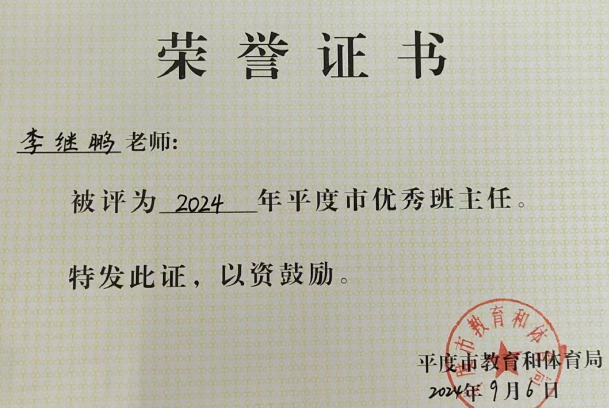 荣誉证书
李继鹏老师：
被评为 2024 年平度市优秀班主任。
特发此证，以资鼓励。
平度市教育和体育局
2024年9月6日